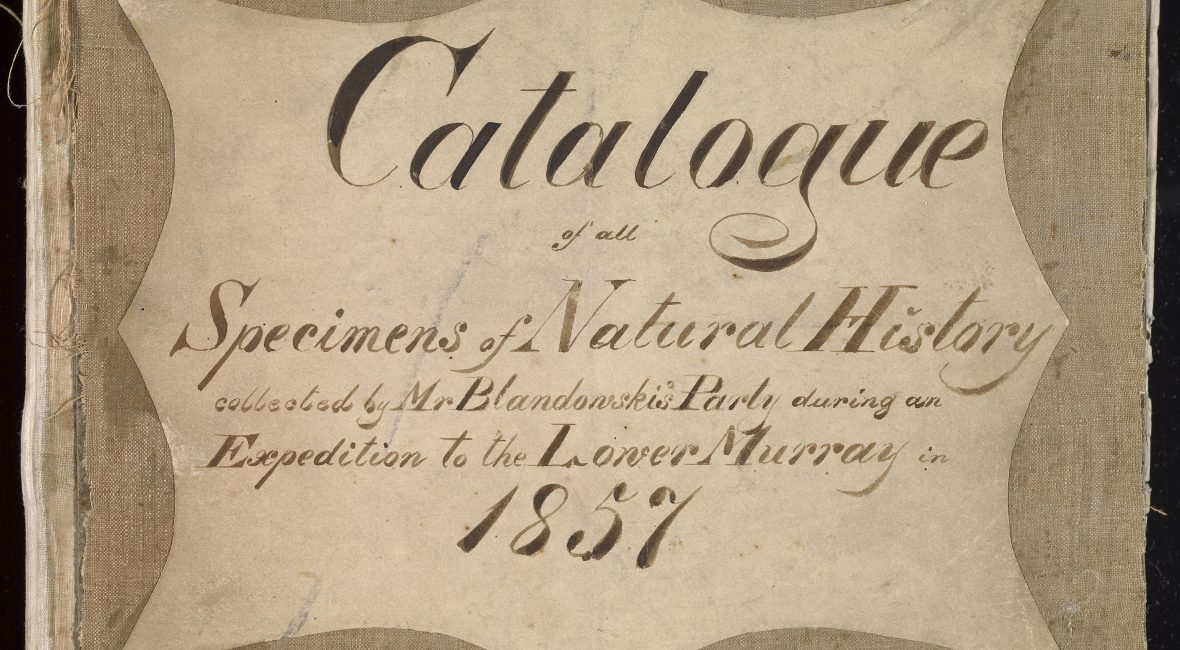 Catalogue
of all
Specimens of Natural History
collected by Mr Blandowski's Party during an
Expedition to the Lower Murray in
1857